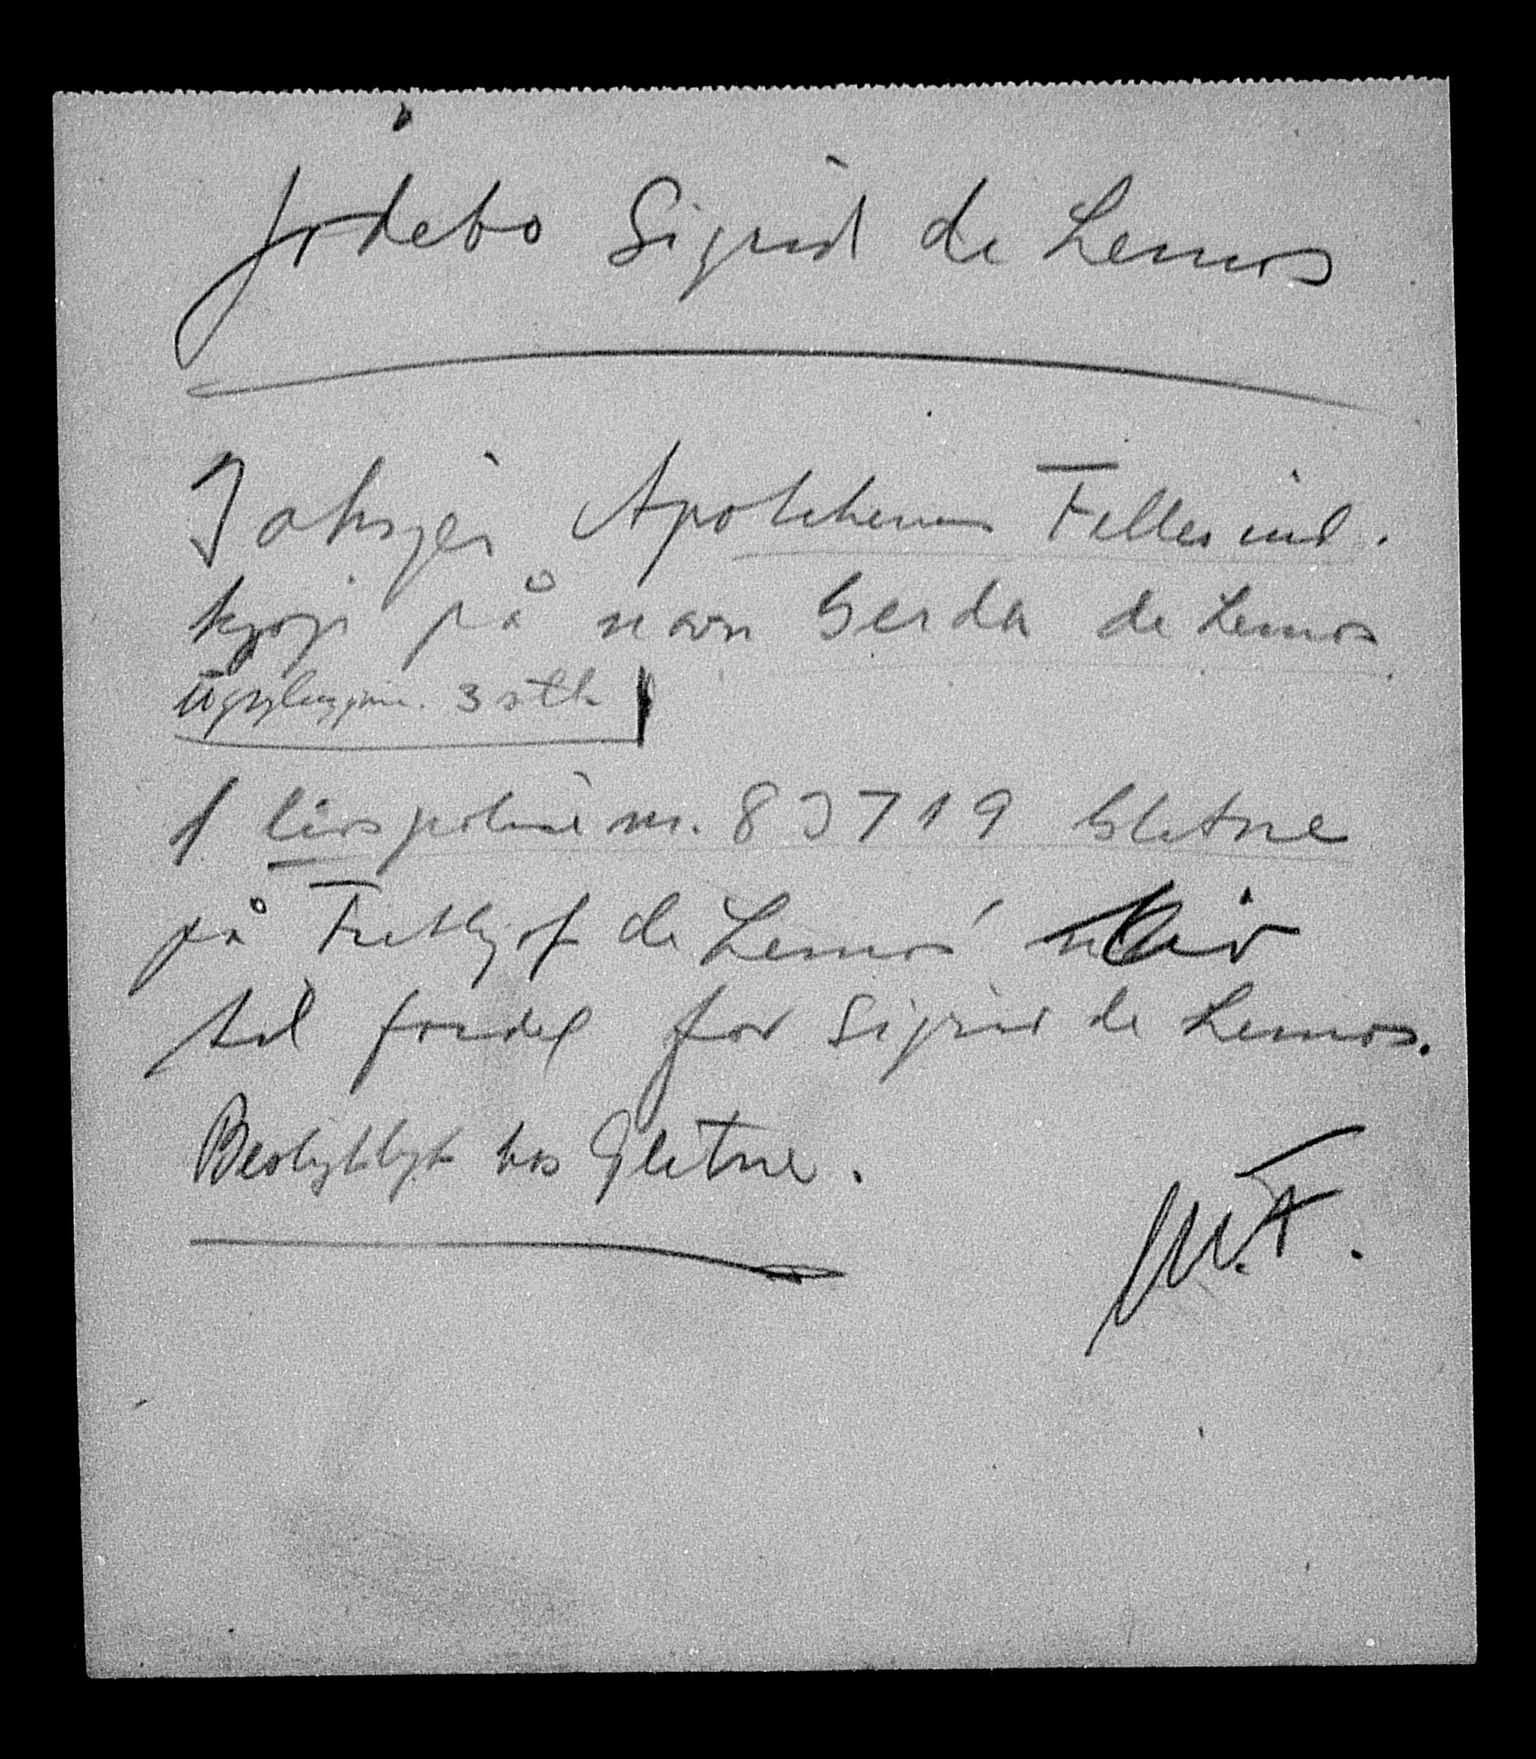 jødebo Sigrid de Lemos
3 aksjer Apothekernes Fellesind.
kjøp på navn Gerda de Lemos
3 stk
1 livspolise nr. 83719 Glitne
på Frithjof de Lemos' liv
til fordel for Sigrid de Lemos.
Beslaglagt hos Glitne.
M.F.